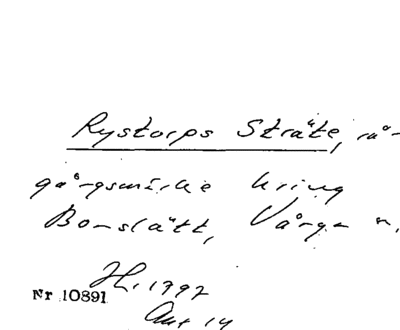 Rystorps Sträte, rå-
gångsmärke kring
Bonslätt, Vårga n.
Hr. 1797
Nr 10891
Akt 14